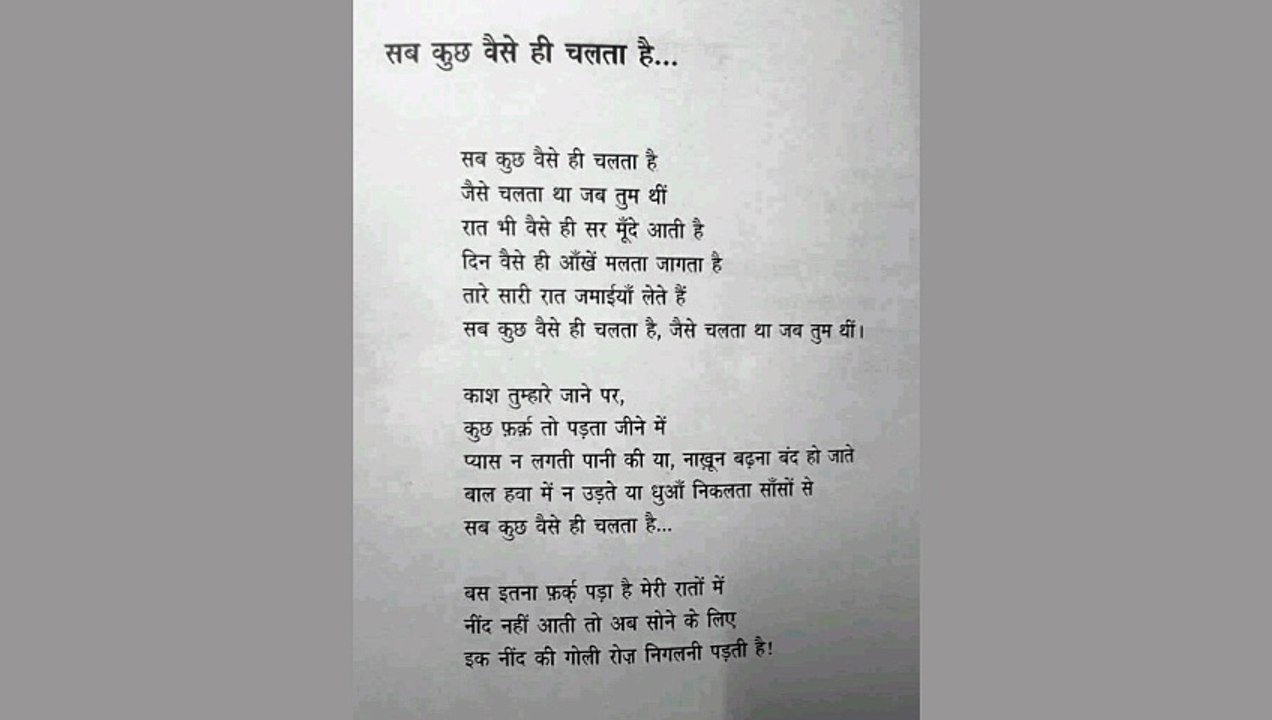 सब कुछ वैसे ही चलता है...
सब कुछ वैसे ही चलता है
जैसे चलता था जब तुम थीं
रात भी वैसे ही सर मूँदे आती है
दिन वैसे ही आँखें मलता जागता है
तारे सारी रात जमाईयाँ लेते हैं
सब कुछ वैसे ही चलता है, जैसे चलता था जब तुम थीं।
काश तुम्हारे जाने पर,
कुछ फ़र्क़ तो पड़ता जीने में
प्यास न लगती पानी की या, नाख़ून बढ़ना बंद हो जाते
बाल हवा में न उड़ते या धुआँ निकलता साँसों से
सब कुछ वैसे ही चलता है...
बस इतना फ़र्क़ पड़ा है मेरी रातों में
नींद नहीं आती तो अब सोने के लिए
इक नींद की गोली रोज़ निगलनी पड़ती है!